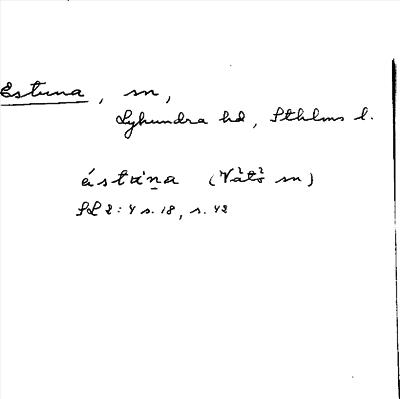 Estuna, sn,
Lyhundra hd, Sthlms l.
ástu̇ṉa (Vätö sn)
SL 2:4 s.18, s.42